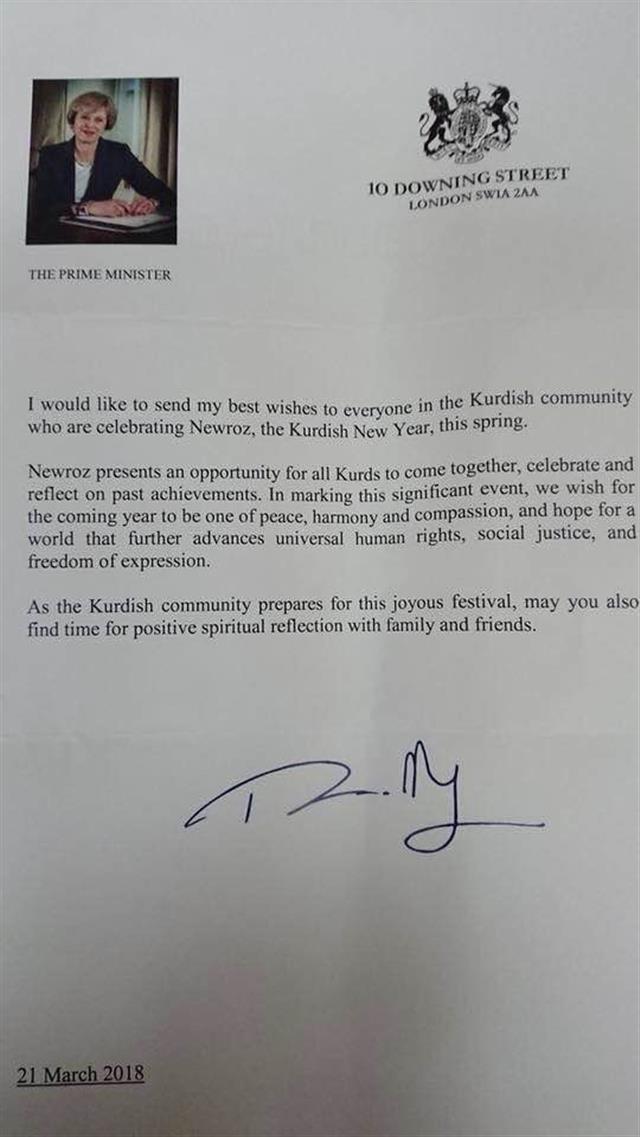 10 DOWNING STREET
LONDON SW1A 2AA
THE PRIME MINISTER
I would like to send my best wishes to everyone in the Kurdish community
who are celebrating Newroz, the Kurdish New Year, this spring.
Newroz presents an opportunity for all Kurds to come together, celebrate and
reflect on past achievements. In marking this significant event, we wish for
the coming year to be one of peace, harmony and compassion, and hope for a
world that further advances universal human rights, social justice, and
freedom of expression.
As the Kurdish community prepares for this joyous festival, may you also
find time for positive spiritual reflection with family and friends.
21 March 2018